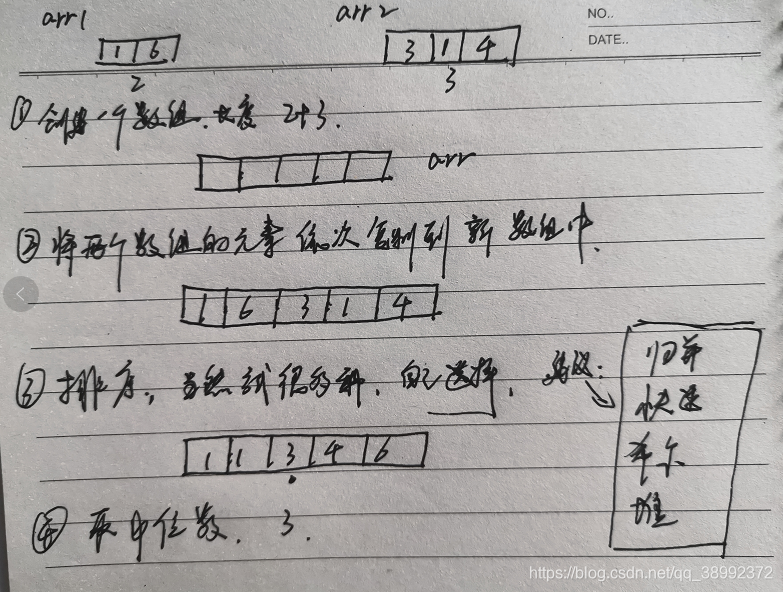 arr1 arr2 NO..
DATE..
1 6 3 1 4
2 3
① 创建一个数组.长度 2+3.
arr
② 将两个数组的元素依次复制到新数组中.
1 6 3 1 4
③ 排序, 当然 很多种, 自己选择,
归并
快速
希尔
堆
1 1 3 4 6
④ 取中位数. 3.
https://blog.csdn.net/qq_38992372